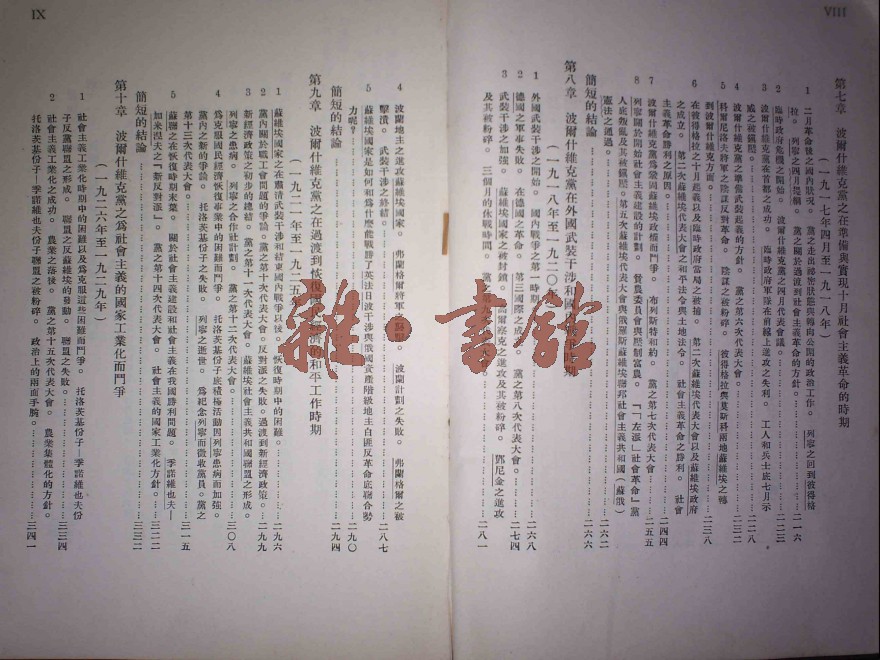 VIII
第七章　波爾什維克黨之在準備與實現十月社會主義革命的時期
（一九一七年四月至一九一八年）
1　二月革命後之國內狀況。　黨之走出秘密狀態與轉向公開的政治工作。　列寧之回到彼得格
校。　列寧之四月提綱。　黨之關於過渡到社會主義革命的方針。……二一六
2　臨時政府危機之開始。　波爾什維克黨之四月代表大會。……二二三
3　波爾什維克黨在首都之成功。　臨時政府軍隊在前線上進攻之失利。　工人和兵士底七月示
威之被鎮壓。
4　波爾什維克黨之準備武裝起義的方針。　黨之第六次代表大會。……二三二
5　科爾尼洛夫將軍之陰謀反對革命。　陰謀之被粉碎。　彼得格拉與莫斯科兩地蘇維埃之轉
到波爾什維克方面。……二三八
6　在彼得格拉之十月起義以及臨時政府當局之被捕。　第二次蘇維埃代表大會以及蘇維埃政府
之成立。　第二次蘇維埃代表大會之和平法令與土地法令。　社會主義革命之勝利。　社會
主義革命勝利之原因。……二四四
7　波爾什維克黨爲鞏固蘇維埃政權而鬥爭。　布列斯特和約。　黨之第七次代表大會。……二五五
8　列寧關於開始社會主義建設的計劃。　貧農委員會與壓制富農。　「『左派』社會革命」黨
人底叛亂及其被鎮壓。　第五次蘇維埃代表大會與俄羅斯蘇維埃聯邦社會主義共和國（蘇俄）
憲法之通過。……二六二
簡短的結論……二六六
第八章　波爾什維克黨在外國武裝干涉和國內戰爭時期
（一九一八年至一九二〇年）
1　外國武裝干涉之開始。　國內戰爭之第一時期。……二六八
2　德國之軍事失敗。　在德國之革命。　第三國際之成立。　黨之第八次代表大會。……二七四
3　武裝干涉之加強。　蘇維埃國家之被封鎖。　高爾察克之進攻及其被粉碎。　鄧尼金之進攻
及其被粉碎。　三個月的休戰時間。　黨之第九次代表大會。……二八一
IX
4　波蘭地主之進攻蘇維埃國家。　弗蘭格爾將軍　　　波蘭計劃之失敗。　弗蘭格爾之被
擊潰。　武裝干涉之終結。……二八七
5　蘇維埃國家是如何和爲什麼能戰勝了英法日波干涉與俄國資產階級地主白匪反革命底聯合勢
力呢？……二九〇
簡短的結論……二九四
第九章　波爾什維克黨之在過渡到恢復國民經濟的和平工作時期
（一九二一年至一九二五年）
1　蘇維埃國家之在肅清武裝干涉和結束國內戰爭以後。　恢復時期中的困難。……二九六
2　黨內關於職工會問題的爭論。　黨之第十次代表大會。　反對派之失敗。　過渡到新經濟政策。……二九九
3　新經濟政策之初步的總結。　黨之第十一次代表大會。　蘇維埃社會主義共和國聯盟之形成。
列寧之患病。　列寧之合作社計劃。　黨之第十二次代表大會。……三〇八
4　爲克服國民經濟恢復事業上的困難而鬥爭。　托洛茨基份子底積極活動因列寧患病而加強。
黨內之新的爭論。　托洛茨基份子之失敗。　列寧之逝世。　爲紀念列寧而徵收黨員。　黨之
第十三次代表大會。……三一五
5　蘇聯之在恢復時期末葉。　關於社會主義建設和社會主義在我國勝利問題。　季諾維也夫—
加米涅夫之「新反對派」。　黨之第十四次代表大會。　社會主義的國家工業化方針。……三二二
簡短的結論……三三二
第十章　波爾什維克黨之爲社會主義的國家工業化而鬥爭
（一九二六年至一九二九年）
1　社會主義工業化時期中的困難以及爲克服這些困難而鬥爭。　托洛茨基份子—季諾維也夫份
子反黨聯盟之形成。　聯盟之反蘇維埃的發動。　聯盟之失敗。……三三四
2　社會主義工業化之成功。　農業之落後。　黨之第十五次代表大會。　農業集體化的方針。
托洛茨基份子—季諾維也夫份子聯盟之被粉碎。　政治上的兩面手腕。……三四一
雜·書館